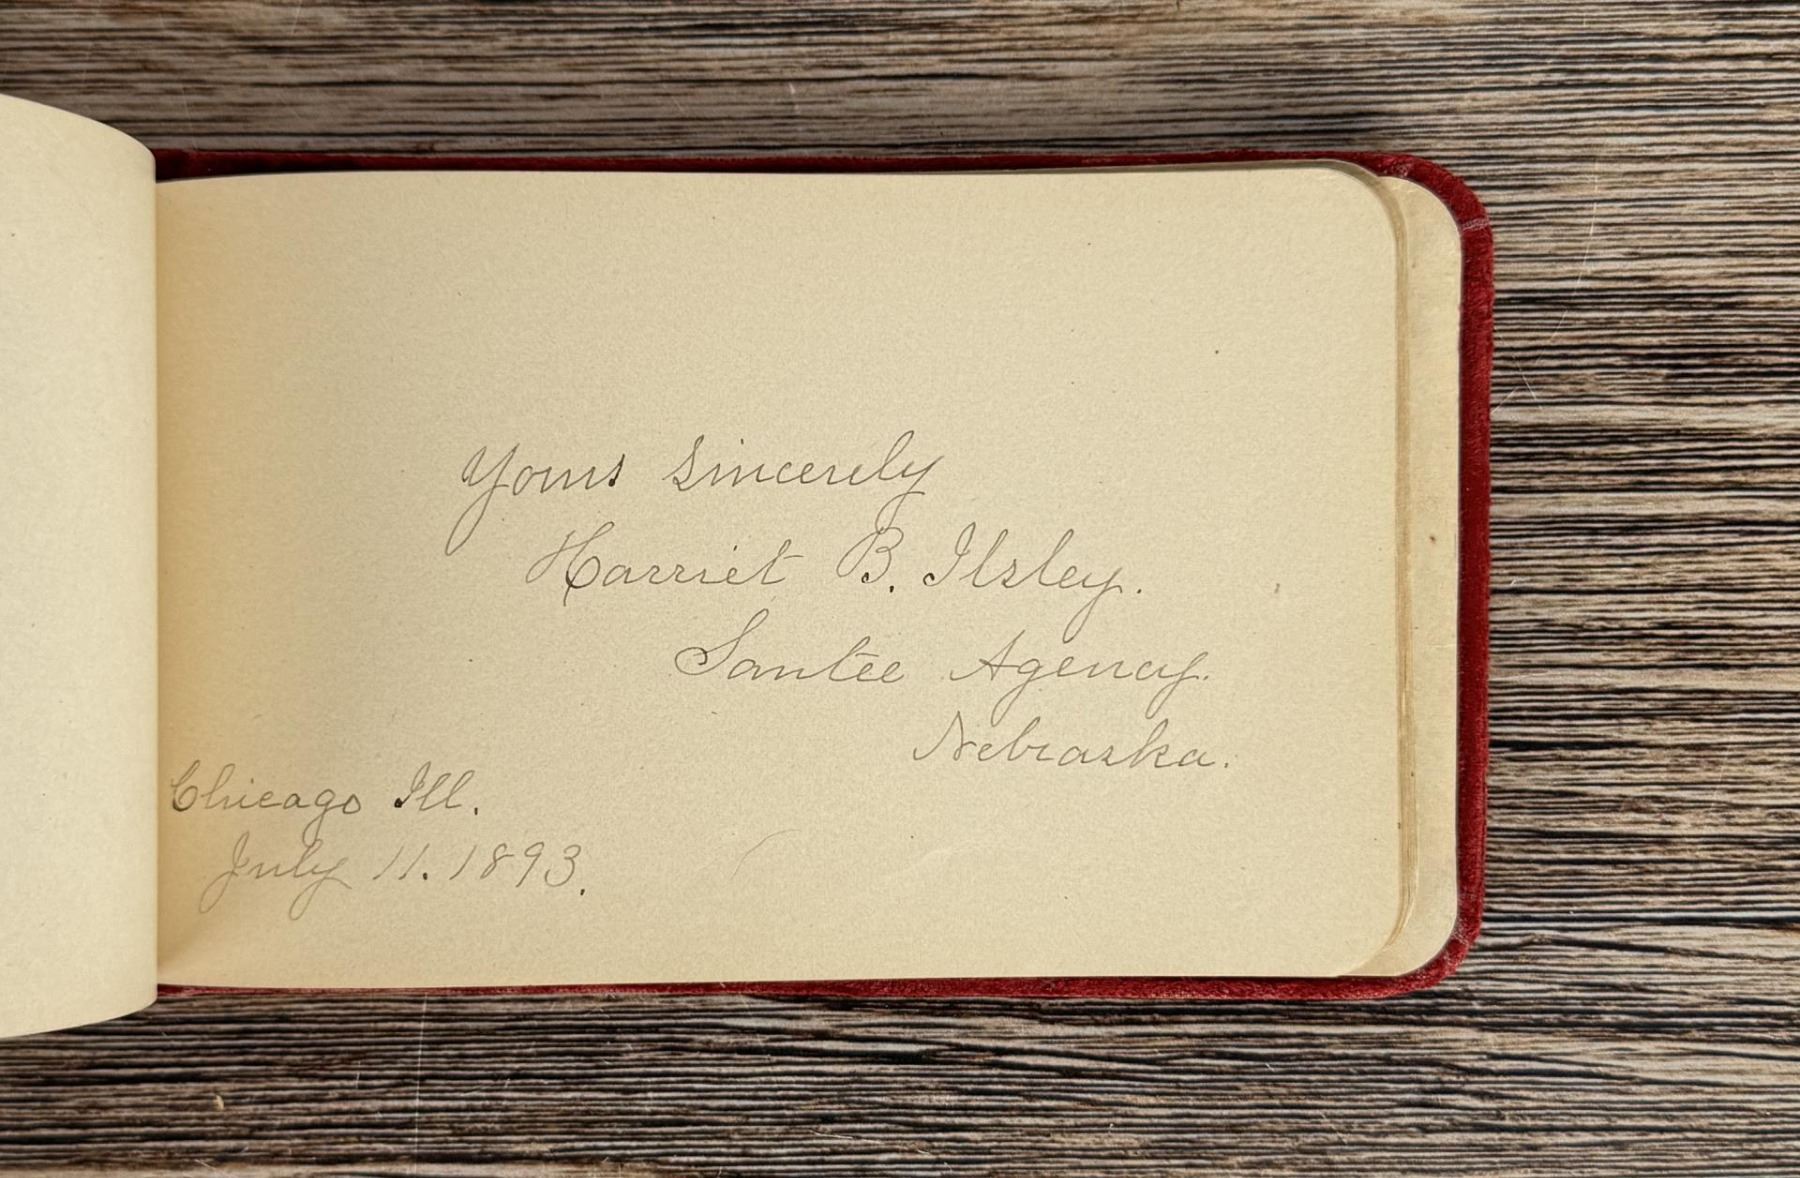 Yours sincerely
Harriet B. Ilsley.
Santee Agency.
Nebraska.
Chicago Ill.
July 11. 1893.